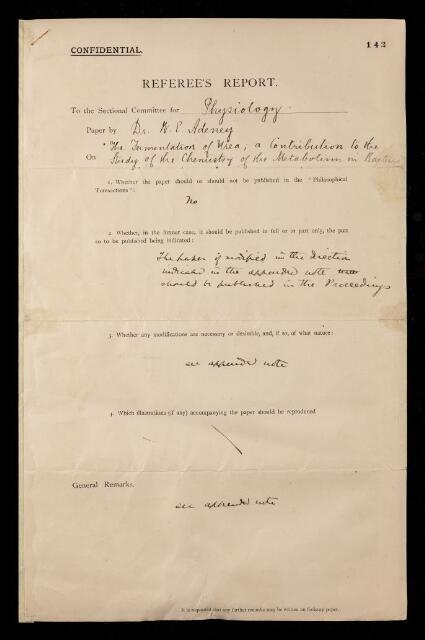 142
CONFIDENTIAL.
REFEREE'S REPORT.
To the Sectional Committee for Physiology
Paper by Dr. W. E. Adeney
"The Fermentation of Urea; a Contribution to the
On Study of the Chemistry of the Metabolism in Bacteria
1. Whether the paper should or should not be published in the "Philosophical
Transactions":
No
2. Whether, in the former case, it should be published in full or in part only, the part
so to be published being indicated:
The paper if modified in the direction
indicated in the appended note
should be published in the Proceedings
3. Whether any modifications are necessary or desirable, and, if so, of what nature:
see appended note
4. Which illustrations (if any) accompanying the paper should be reproduced
General Remarks.
see appended note
It is requested that any further remarks may be written on foolscap paper.